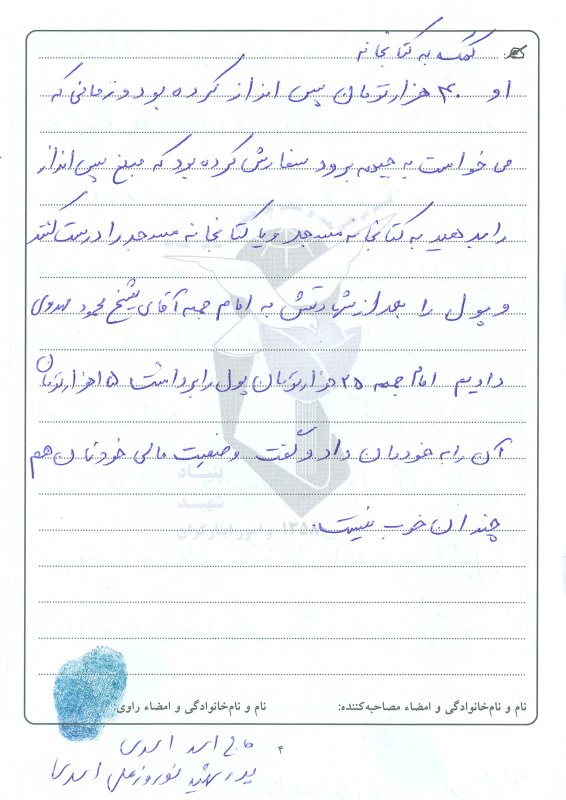 کمک به کتابخانه
او ۴۰ هزار تومان پس انداز کرده بود و زمانی که
می خواست به جبهه برود سفارش کرده بود که مبلغ پس انداز
را بدهید به کتابخانه مسجد و یا کتابخانه مسجد را درست کنند
و پول را بعد از شهادتش به امام جمعه آقای شیخ محمود مهدوی
دادیم امام جمعه ۲۵ هزار تومان پول را برداشت ۱۵ هزار تومان
آن را به خودمان داد و گفت وضعیت مالی خودتان هم
چندان خوب نیست.
بنیاد
شهید
و امور ایثارگران ۱۳۵۸
نام و نام‌خانوادگی و امضاء مصاحبه‌کننده: نام و نام‌خانوادگی و امضاء راوی:
حاج اسد اسدی
پدر شهید نوروزعلی اسدی
۴